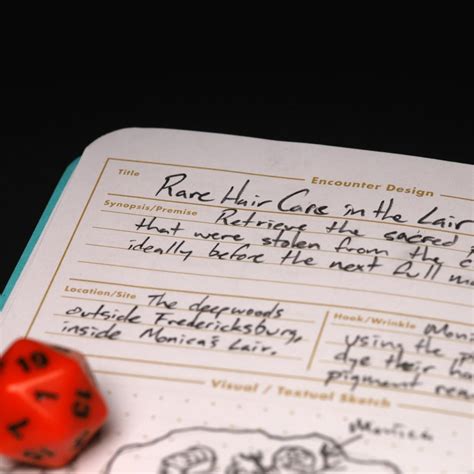 Title
Encounter Design
Rare Hair Care in the Lair
Synopsis/Premise Retrieve the sacred
that were stolen from the
ideally before the next full
Location/Site The deepwoods
outside Fredericksburg,
inside Monica's Lair.
Hook/Wrinkle
using the
dye their
pigment
Visual / Textual Sketch
Monica
10
7